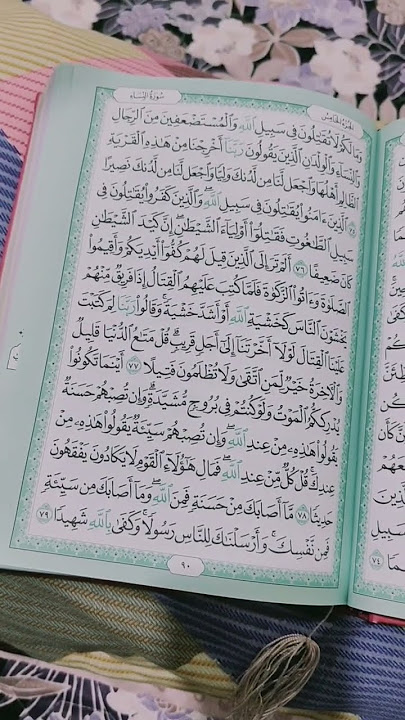 الجزء الخامس
سورة النساء
وَمَا لَكُمْ لَا تُقَٰتِلُونَ فِى سَبِيلِ ٱللَّهِ وَٱلْمُسْتَضْعَفِينَ مِنَ ٱلرِّجَالِ
وَٱلنِّسَآءِ وَٱلْوِلْدَٰنِ ٱلَّذِينَ يَقُولُونَ رَبَّنَآ أَخْرِجْنَا مِنْ هَٰذِهِ ٱلْقَرْيَةِ
ٱلظَّالِمِ أَهْلُهَا وَٱجْعَل لَّنَا مِن لَّدُنكَ وَلِيًّا وَٱجْعَل لَّنَا مِن لَّدُنكَ نَصِيرًا
٧٥ ٱلَّذِينَ ءَامَنُوا۟ يُقَٰتِلُونَ فِى سَبِيلِ ٱللَّهِ ۖ وَٱلَّذِينَ كَفَرُوا۟ يُقَٰتِلُونَ فِى
سَبِيلِ ٱلطَّٰغُوتِ فَقَٰتِلُوٓا۟ أَوْلِيَآءَ ٱلشَّيْطَٰنِ ۖ إِنَّ كَيْدَ ٱلشَّيْطَٰنِ
كَانَ ضَعِيفًا ٧٦ أَلَمْ تَرَ إِلَى ٱلَّذِينَ قِيلَ لَهُمْ كُفُّوٓا۟ أَيْدِيَكُمْ وَأَقِيمُوا۟
ٱلصَّلَوٰةَ وَءَاتُوا۟ ٱلزَّكَوٰةَ فَلَمَّا كُتِبَ عَلَيْهِمُ ٱلْقِتَالُ إِذَا فَرِيقٌ مِّنْهُمْ
يَخْشَوْنَ ٱلنَّاسَ كَخَشْيَةِ ٱللَّهِ أَوْ أَشَدَّ خَشْيَةً ۚ وَقَالُوا۟ رَبَّنَا لِمَ كَتَبْتَ
عَلَيْنَا ٱلْقِتَالَ لَوْلَآ أَخَّرْتَنَآ إِلَىٰٓ أَجَلٍ قَرِيبٍ ۗ قُلْ مَتَٰعُ ٱلدُّنْيَا قَلِيلٌ
وَٱلْءَاخِرَةُ خَيْرٌ لِّمَنِ ٱتَّقَىٰ وَلَا تُظْلَمُونَ فَتِيلًا ٧٧ أَيْنَمَا تَكُونُوا۟
يُدْرِككُّمُ ٱلْمَوْتُ وَلَوْ كُنتُمْ فِى بُرُوجٍ مُّشَيَّدَةٍ ۗ وَإِن تُصِبْهُمْ حَسَنَةٌ
يَقُولُوا۟ هَٰذِهِۦ مِنْ عِندِ ٱللَّهِ ۖ وَإِن تُصِبْهُمْ سَيِّئَةٌ يَقُولُوا۟ هَٰذِهِۦ مِنْ
عِندِكَ ۚ قُلْ كُلٌّ مِّنْ عِندِ ٱللَّهِ ۖ فَمَالِ هَٰٓؤُلَآءِ ٱلْقَوْمِ لَا يَكَادُونَ يَفْقَهُونَ
حَدِيثًا ٧٨ مَّآ أَصَابَكَ مِنْ حَسَنَةٍ فَمِنَ ٱللَّهِ ۖ وَمَآ أَصَابَكَ مِن سَيِّئَةٍ
فَمِن نَّفْسِكَ ۚ وَأَرْسَلْنَٰكَ لِلنَّاسِ رَسُولًا ۚ وَكَفَىٰ بِٱللَّهِ شَهِيدًا ٧٩
٩٠